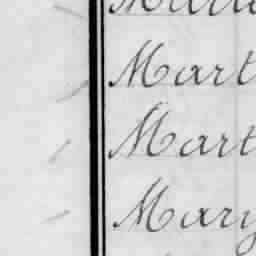 Mart
Mart
Mary